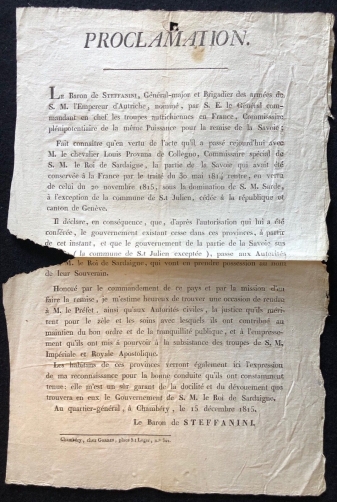 PROCLAMATION.
LE Baron de STEFFANINI, Général-major et Brigadier des armées de
S. M. l'Empereur d'Autriche, nommé, par S. E. le Général com-
mandant en chef les troupes autrichiennes en France, Commissaire
plénipotentiaire de la même Puissance pour la remise de la Savoie;
Fait connaître qu'en vertu de l'acte qu'il a passé aujourd'hui avec
M. le chevalier Louis Provana de Collegno, Commissaire spécial de
S. M. le Roi de Sardaigne, la partie de la Savoie qui avait été
conservée à la France par le traité du 30 mai 1814, rentre, en vertu
de celui du 20 novembre 1815, sous la domination de S. M. Sarde,
à l'exception de la commune de S.t Julien, cédée à la république et
canton de Genève.
Il déclare, en conséquence, que, d'après l'autorisation qui lui a été
conférée, le gouvernement existant cesse dans ces provinces, à partir
de cet instant, et que le gouvernement de la partie de la Savoie sus
( la commune de S.t Julien exceptée ), passe aux Autorités
M. le Roi de Sardaigne, qui sont en prendre possession au nom
de leur Souverain.
Honoré par le commandement de ce pays et par la mission d'en
faire la remise, je m'estime heureux de trouver une occasion de rendre
à M. le Préfet, ainsi qu'aux Autorités civiles, la justice qu'ils méri-
tent pour le zèle et les soins avec lesquels ils ont contribué au
maintien du bon ordre et de la tranquillité publique, et à l'empresse-
ment qu'ils ont mis à pourvoir à la subsistance des troupes de S. M.
Impériale et Royale Apostolique.
Les habitans de ces provinces verront également ici l'expression
de ma reconnaissance pour la bonne conduite qu'ils ont constamment
tenue: elle m'est un sûr garant de la docilité et du dévouement que
trouvera en eux le Gouvernement de S. M. le Roi de Sardaigne.
Au quartier-général, à Chambéry, le 15 décembre 1815.
Le Baron de STEFFANINI.
Chambéry, chez Gorrin, place St Léger, n.º